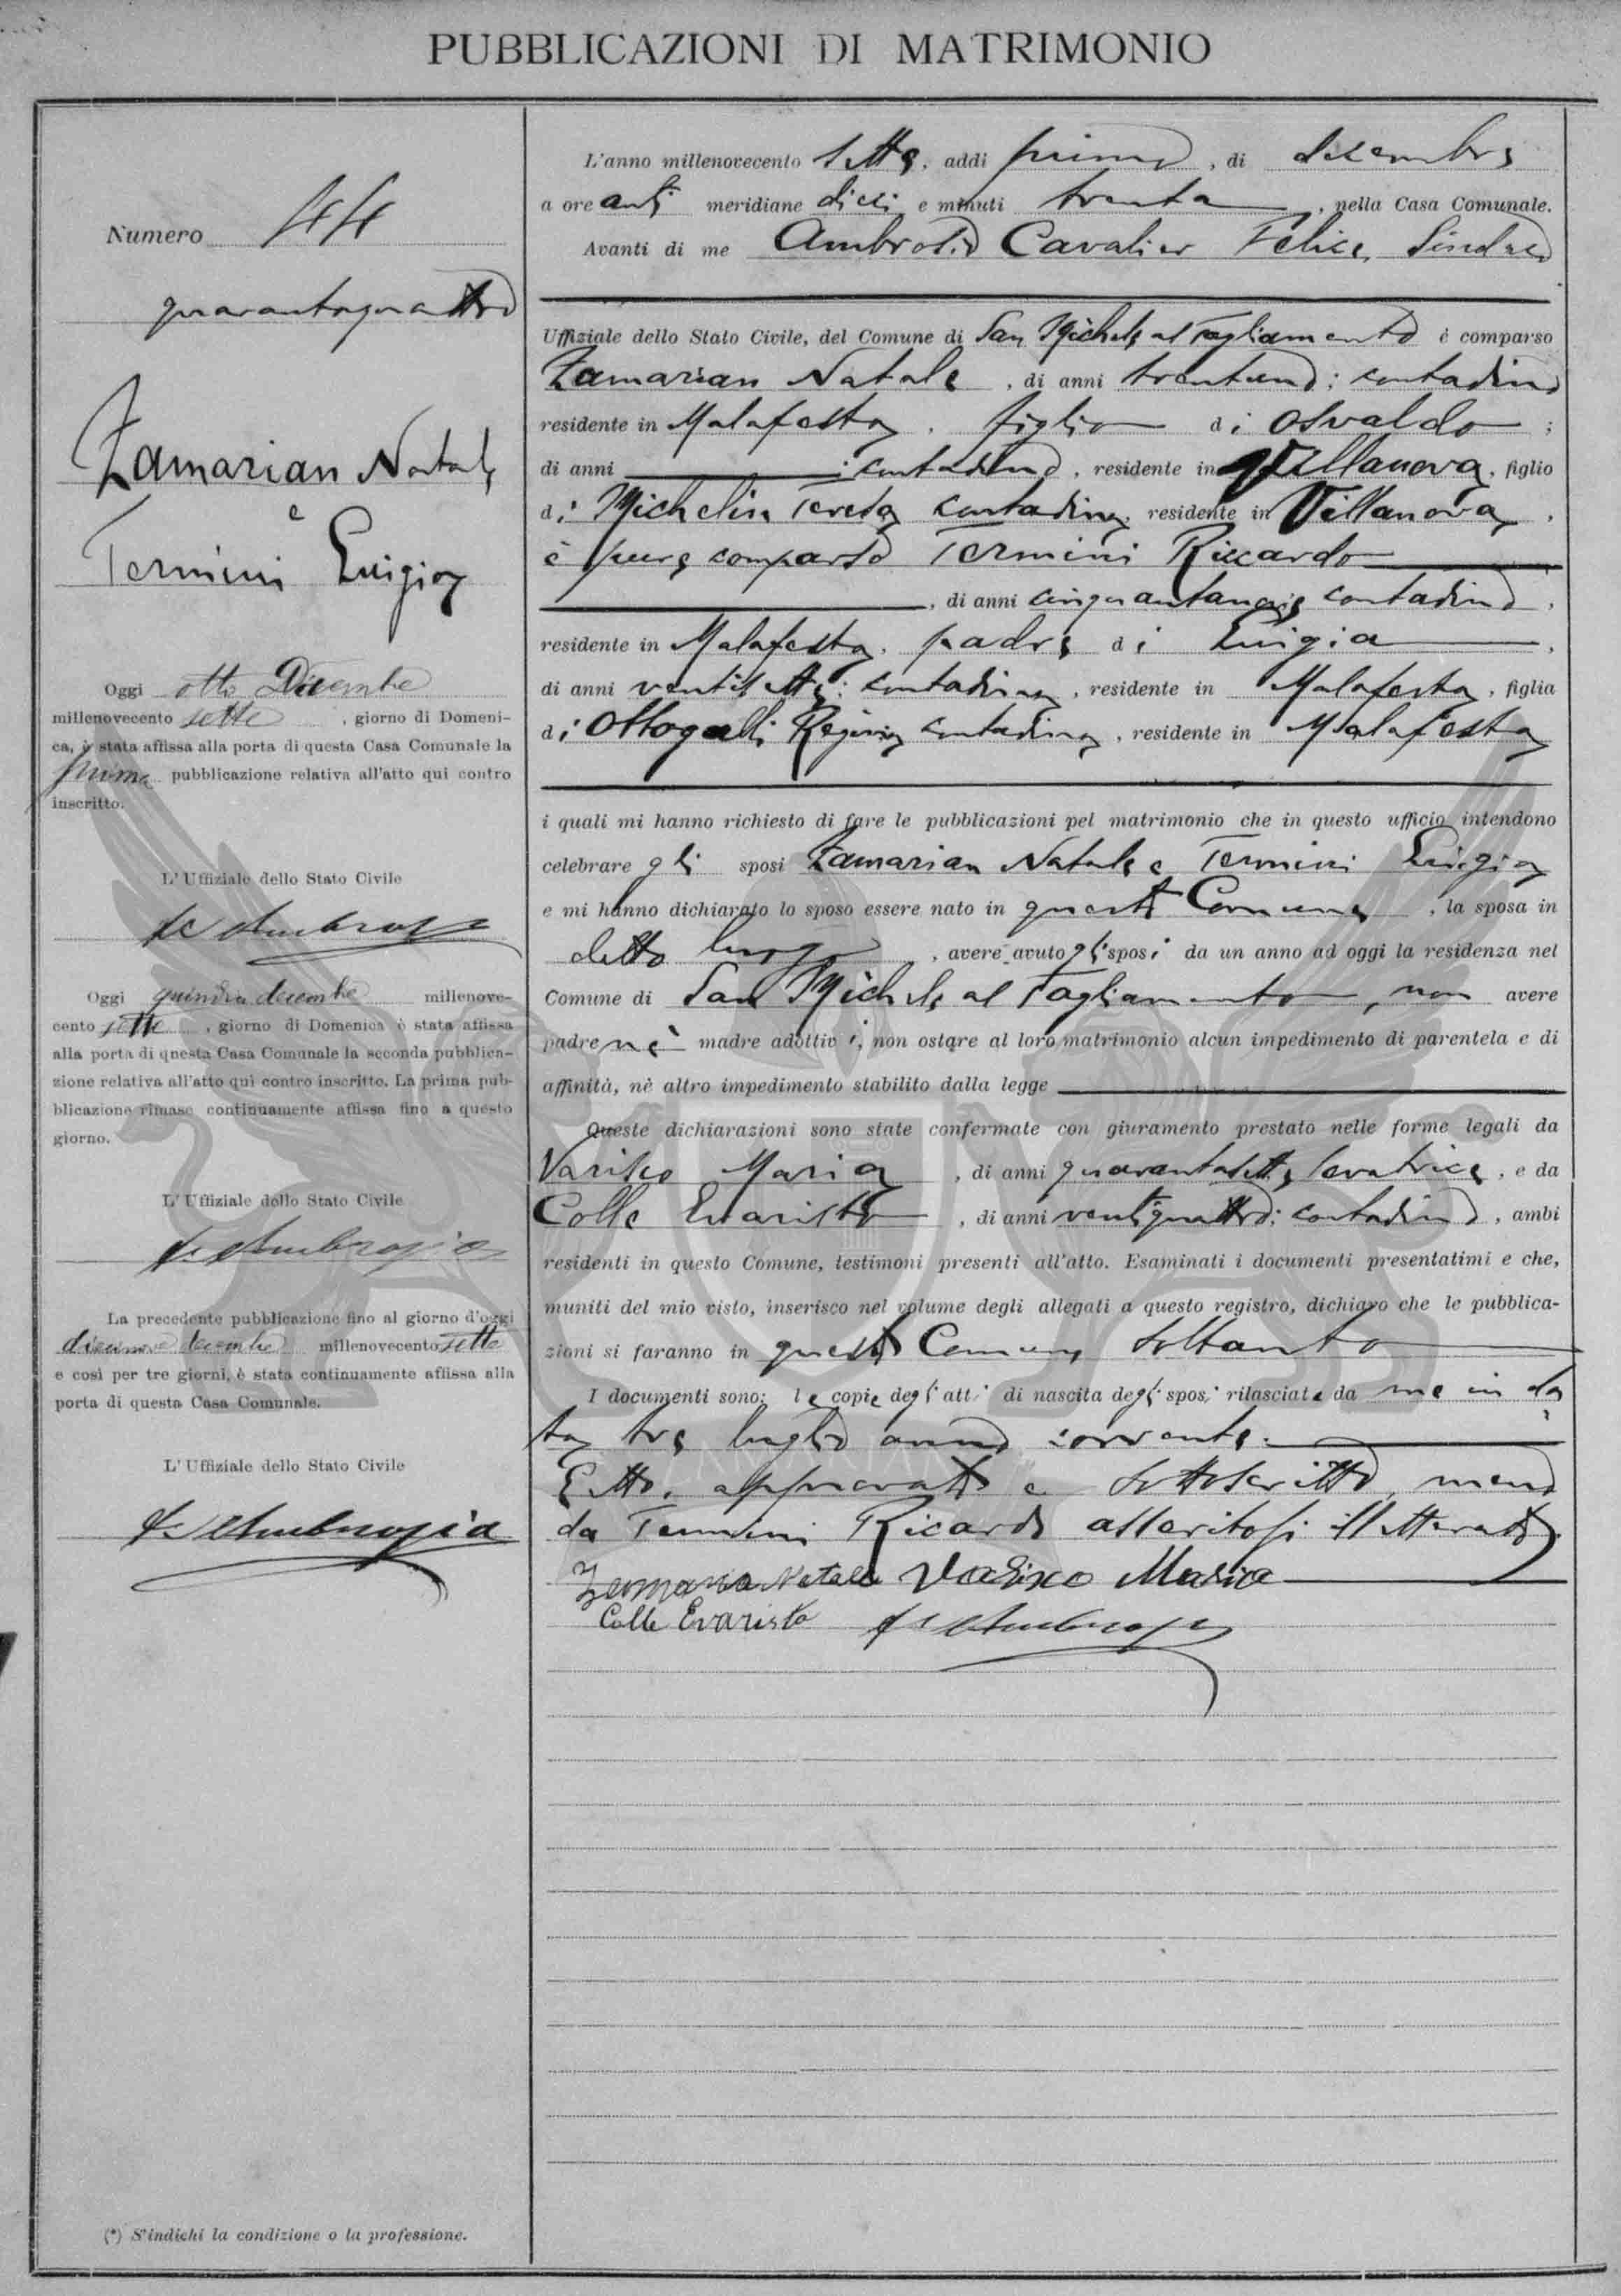 PUBBLICAZIONI DI MATRIMONIO
Numero 44
quarantaquattro
Zamarian Natale
e
Termini Luigia
Oggi otto Dicembre
millenovecento sette, giorno di Domeni-
ca, è stata affissa alla porta di questa Casa Comunale la
prima pubblicazione relativa all'atto qui contro
inscritto.
L'Uffiziale dello Stato Civile
Oggi quindici decembre millenove-
cento sette, giorno di Domenica è stata affissa
alla porta di questa Casa Comunale la seconda pubblica-
zione relativa all'atto qui contro inscritto. La prima pub-
blicazione rimase continuamente affissa fino a questo
giorno.
L'Uffiziale dello Stato Civile
F. Ambrosio
La precedente pubblicazione fino al giorno d'oggi
diecinove decembre millenovecento sette
e così per tre giorni, è stata continuamente affissa alla
porta di questa Casa Comunale.
L'Uffiziale dello Stato Civile
F. Ambrosio
(*) S'indichi la condizione o la professione.
L'anno millenovecento sette, addi primo, di decembre
a ore anti meridiane dieci e minuti trenta, nella Casa Comunale.
Avanti di me Ambrosio Cavalier Felice, Sindaco
Uffiziale dello Stato Civile, del Comune di San Michele al Tagliamento è comparso
Zamarian Natale, di anni trentuno; contadino
residente in Malafesta, figlio di Osvaldo;
di anni ; contadino, residente in Villanova, figlio
di Michelin Teresa contadina, residente in Villanova,
è pure comparso Termini Riccardo
, di anni contadino,
residente in Malafesta, padre di Luigia,
di anni ventisette; contadina, residente in Malafesta, figlia
di Ottogalli Regina contadina, residente in Malafesta
i quali mi hanno richiesto di fare le pubblicazioni pel matrimonio che in questo ufficio intendono
celebrare gli sposi Zamarian Natale e Termini Luigia
e mi hanno dichiarato lo sposo essere nato in questo Comune, la sposa in
detto luogo, avere avuto gli sposi da un anno ad oggi la residenza nel
Comune di San Michele al Tagliamento, non avere
padre nè madre adottivi, non ostare al loro matrimonio alcun impedimento di parentela e di
affinità, nè altro impedimento stabilito dalla legge
Queste dichiarazioni sono state confermate con giuramento prestato nelle forme legali da
Varisco Maria, di anni quarantasette, levatrice, e da
Colle Evaristo, di anni ventiquattro; contadino, ambi
residenti in questo Comune, testimoni presenti all'atto. Esaminati i documenti presentatimi e che,
muniti del mio visto, inserisco nel volume degli allegati a questo registro, dichiaro che le pubblica-
zioni si faranno in questo Comune soltanto
I documenti sono: le copie degli atti di nascita degli sposi rilasciate da me in da
ta tre luglio anno corrente.
Letto, approvato e sottoscritto, meno
da Termini Ricardo asseritosi illetterato.
Zamarian Natale Varisco Maria
Colle Evaristo F. Ambrosio